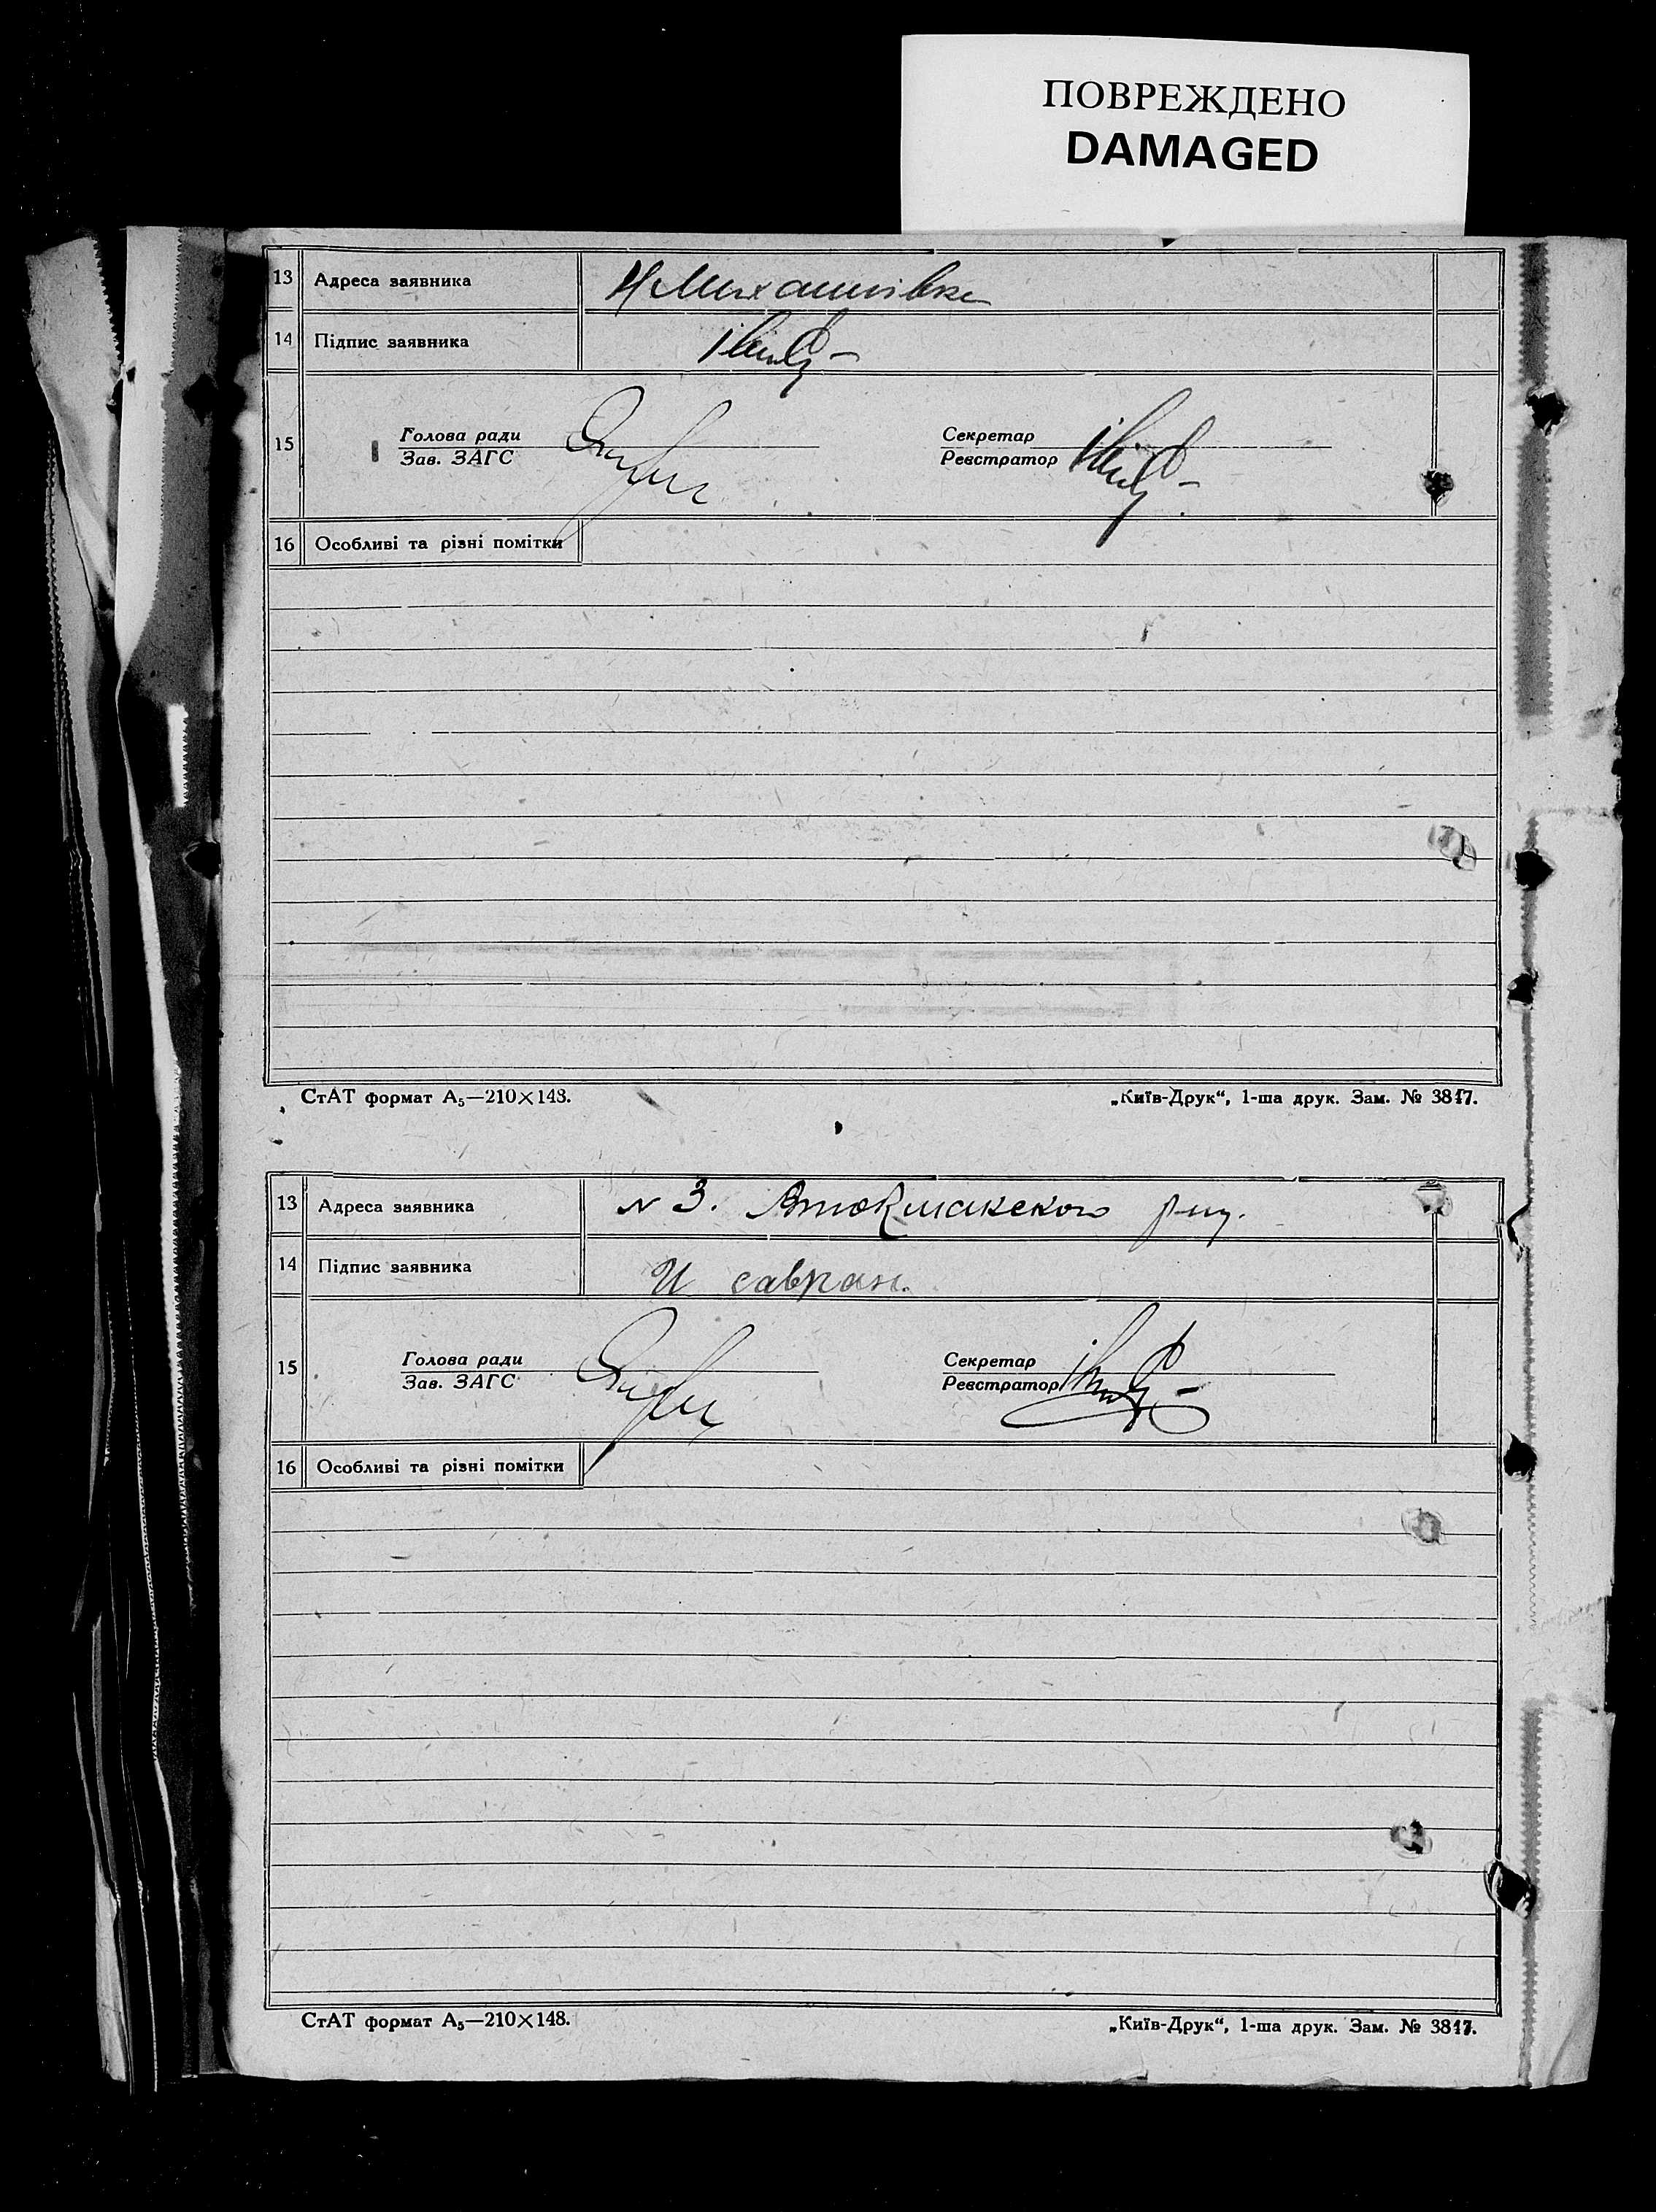 ПОВРЕЖДЕНО
DAMAGED
13 Адреса заявника Н Михайлівка
14 Підпис заявника
15 Голова ради Секретар
Зав. ЗАГС Реєстратор
16 Особливі та різні помітки
СтАТ формат А₅—210×148. „Київ-Друк“, 1-ша друк. Зам. № 3817.
13 Адреса заявника N 3.
14 Підпис заявника И савран.
15 Голова ради Секретар
Зав. ЗАГС Реєстратор
16 Особливі та різні помітки
СтАТ формат А₅—210×148. „Київ-Друк“, 1-ша друк. Зам. № 3817.